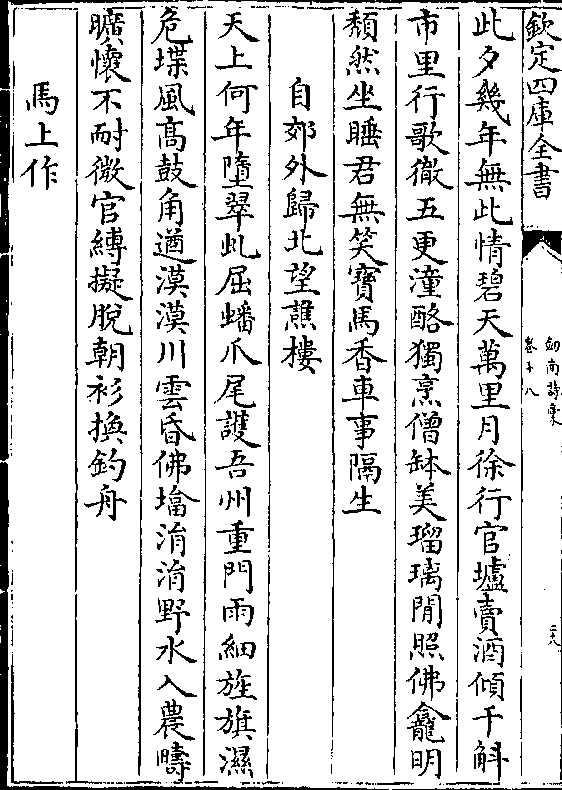 欽定四庫全書
劔南詩稾
卷十八
二八
此夕幾年無此情碧天萬里月徐行官壚賣酒傾千斛
市里行歌徹五更潼酪獨烹僧缽美瑠璃閒照佛龕明
頽然坐睡君無笑寶馬香車事隔生
自郊外歸北望譙樓
天上何年墮翠虬屈蟠爪尾護吾州重門雨細旌旗濕
危堞風髙鼓角遒漠漠川雲昏佛塔涓涓野水入農疇
曠懷不耐微官縛擬脫朝衫換釣舟
馬上作